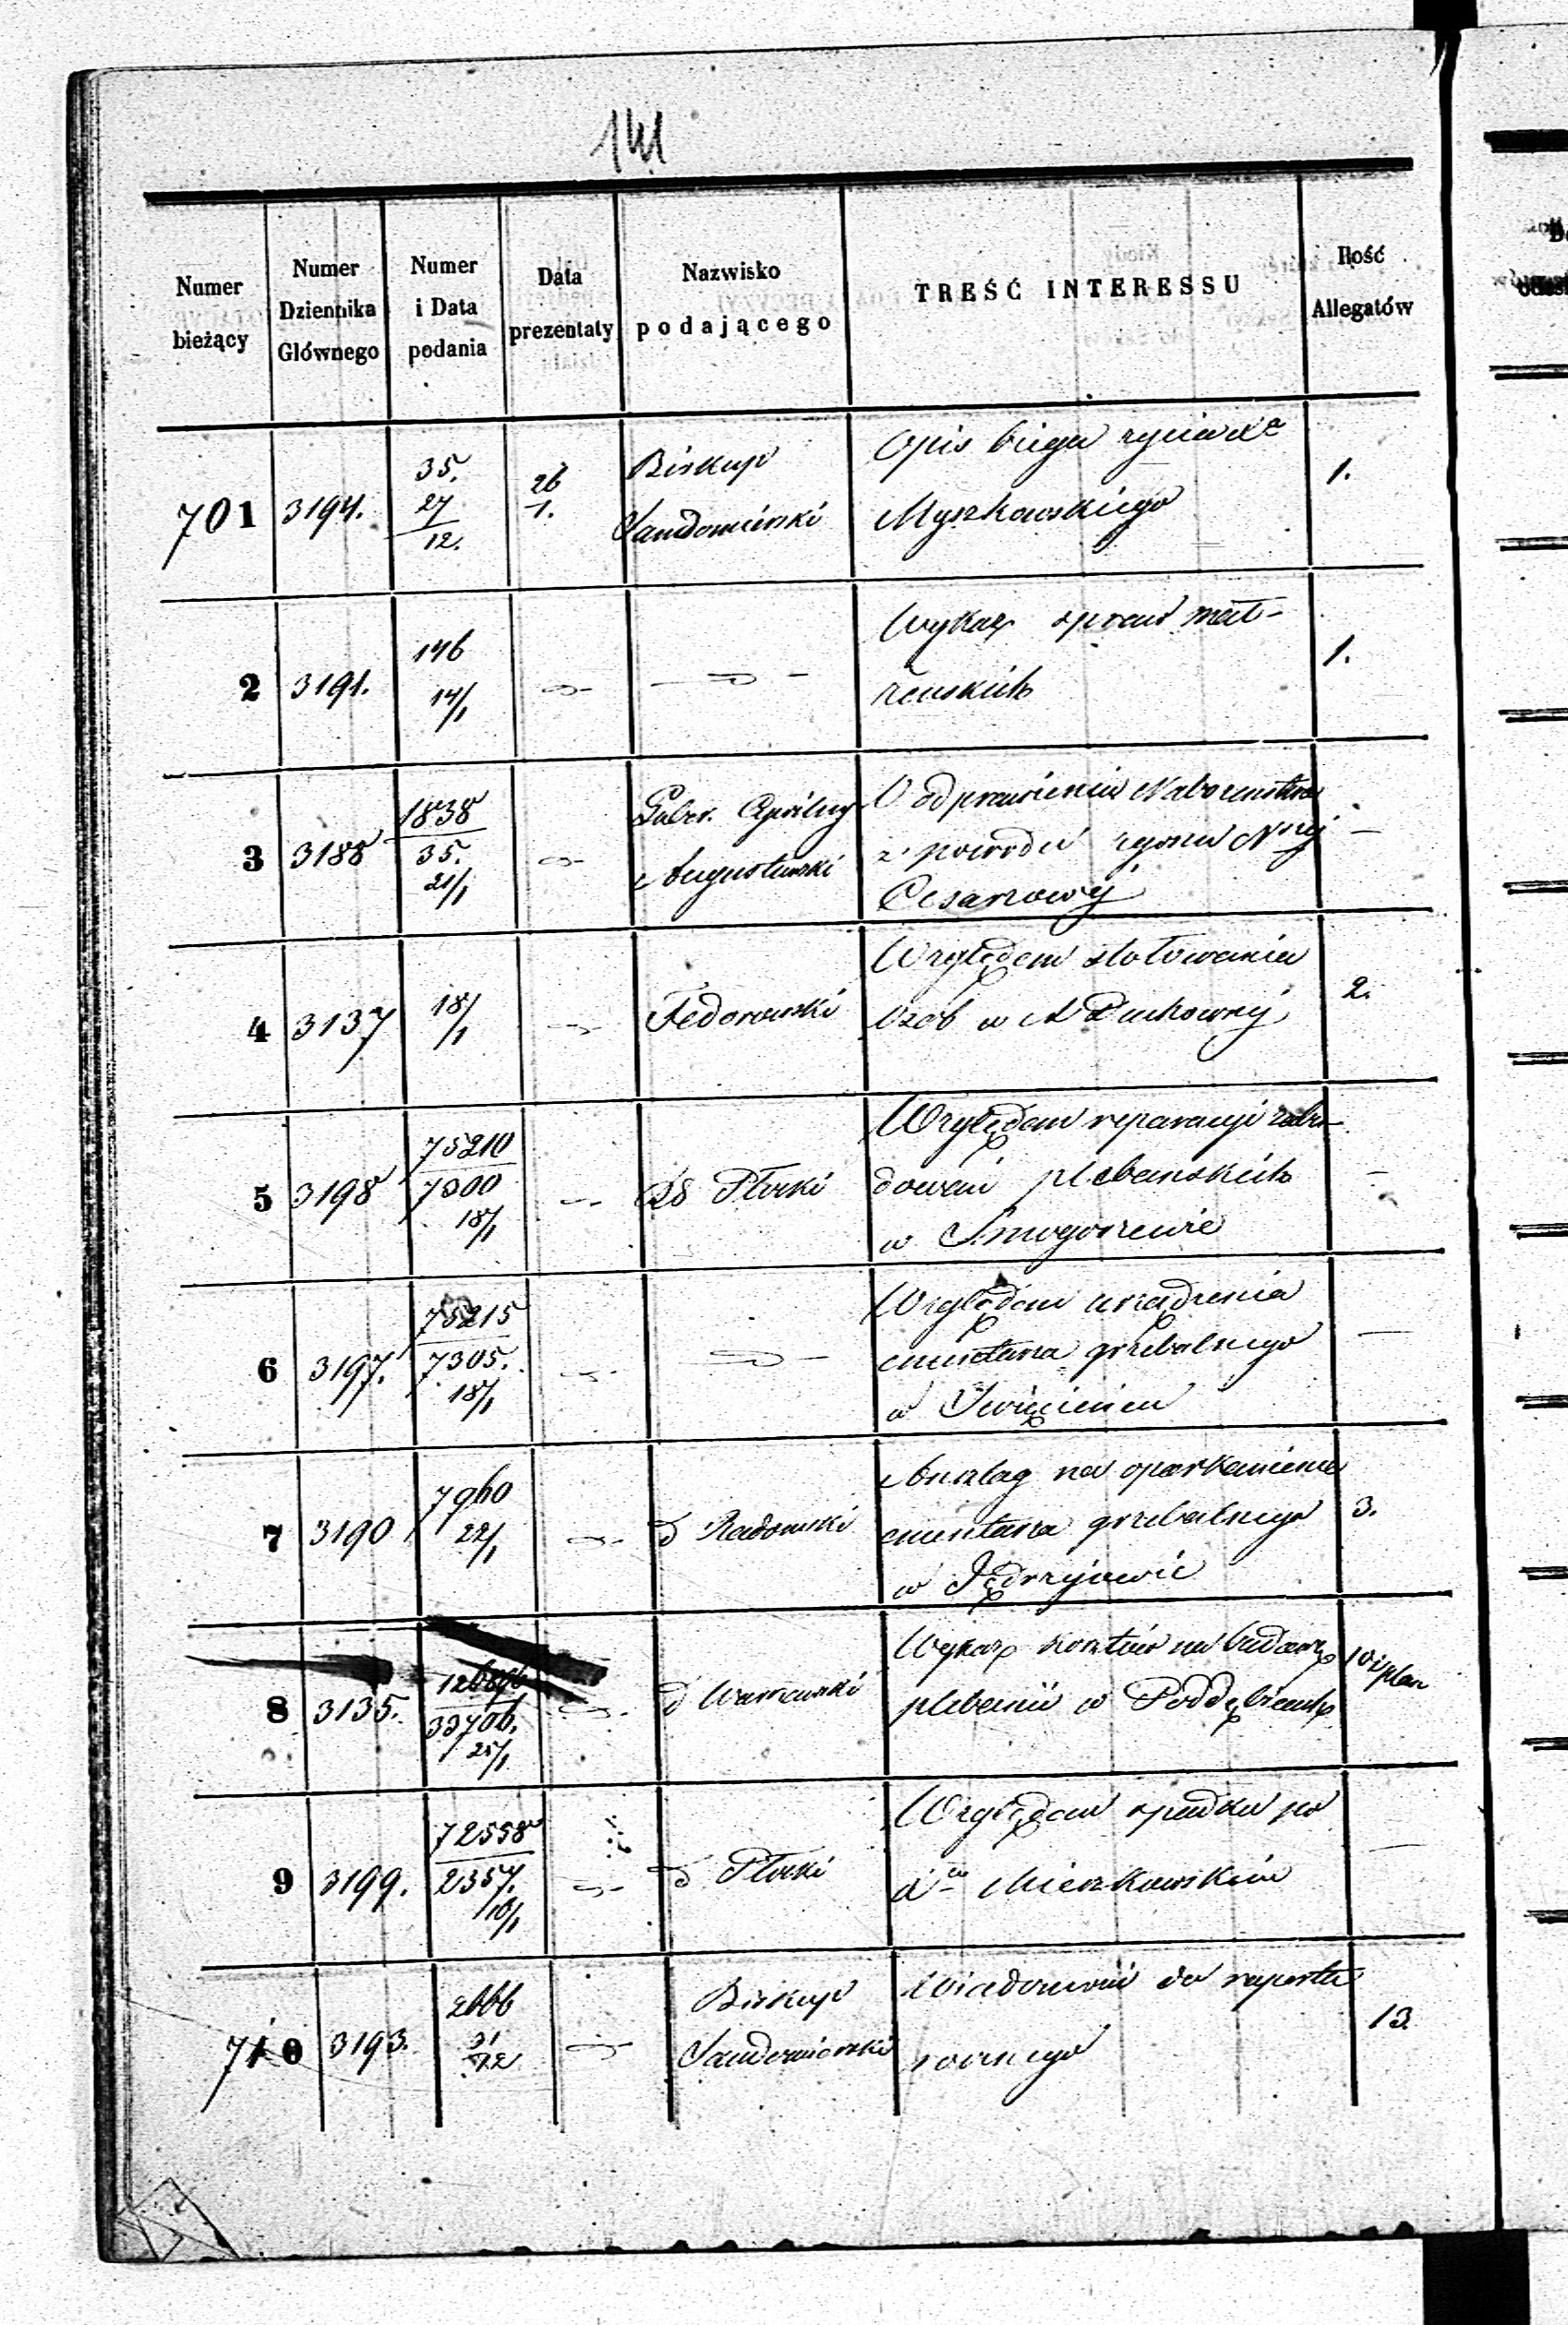 141
Numer bieżący | Numer Dziennika Głównego | Numer i Data podania | Data prezentaty | Nazwisko podającego | TREŚĆ INTERESSU | Ilość Allegatów
701 | 3194. | 35. 27/12. | 26/1. | Biskup | Opis biegu życia Xa | 1.
Sandomirski | Myszkowskiego
2 | 3191. | 146 14/1 | — | — | Wykaz spraw mał- | 1.
żeńskich
3 | 3188 | 1838/35. 21/1 | — | Guber. Cywilny | O odprawieniu Nabożeństwa | —
Augustowski | z powodu zgonu Nszej
Cesarzowej
4 | 3137 | 18/1 | — | Fedorowski | Względem stołowania | 2.
osób w A Duchownej
5 | 3198 | 75210/7300 18/1 | — | Płocki | Względem reparacyi zabu- | —
dowań plebańskich
w Smogorzewie
6 | 3197. | 75215/7305. 18/1 | — | — | Względem urządzenia | —
cmentarza grzebalnego
w
7 | 3190 | 7960 22/1 | — | d Radomski | Anszlag na oparkanienie | 3.
cmentarza grzebalnego | w Jędrzejowie
8 | 3135. | 33706. 25/1 | — | d Warszawski | Wykaz kosztów na budowę | 10 i plan
plebanii w Poddębicach
9 | 3199. | 72558/2357. 18/1 | — | d Płocki | Względem spadku po | —
Mierzkowskim
710 | 3193. | 2666 31/12 | — | Biskup | Wiadomość do raportu | 13.
Sandomirski | rocznego